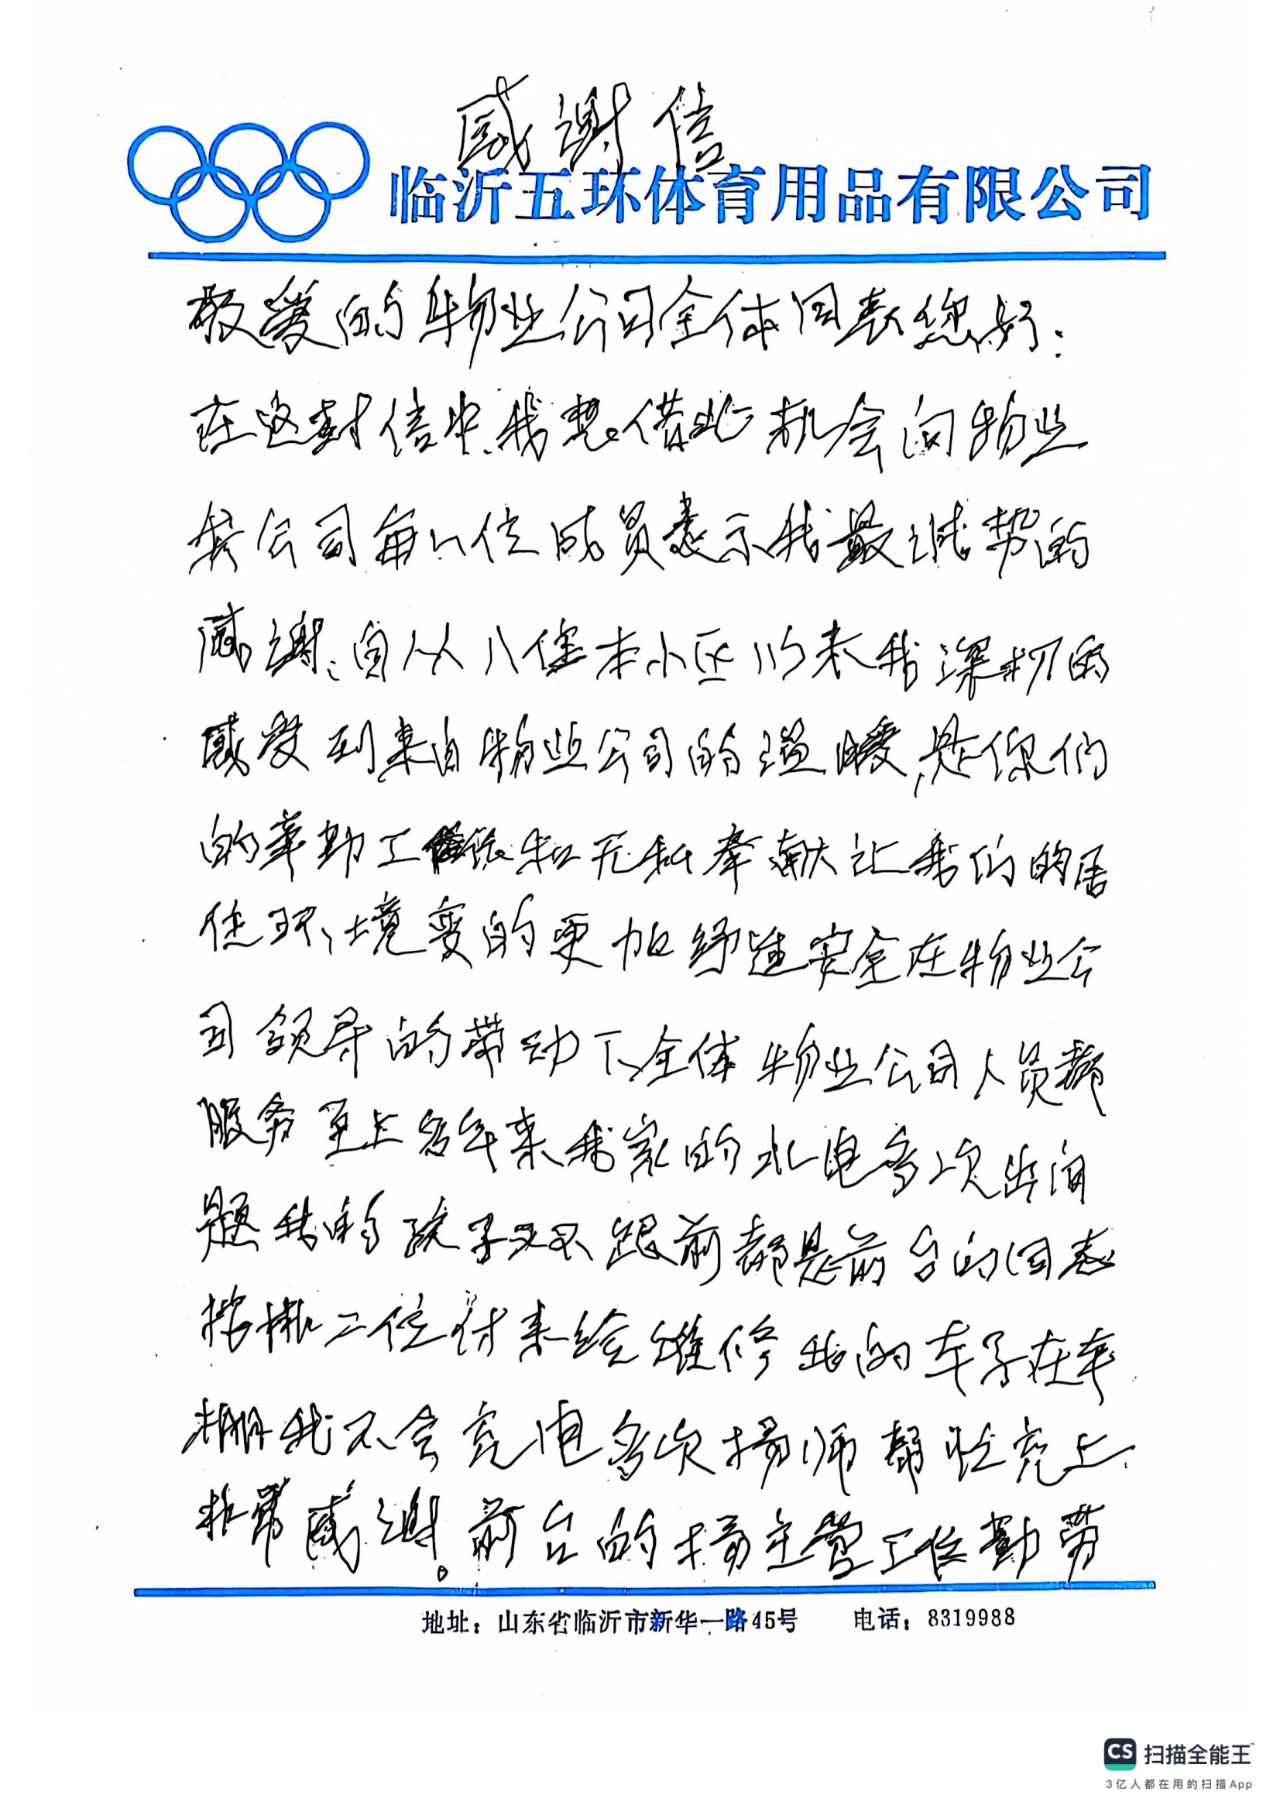 感谢信
临沂五环体育用品有限公司
敬爱的物业公司全体同志您好:
在这封信中,我想借此机会向物业
公司每一位成员表示我最诚挚的
感谢,自从入住本小区以来我深切的
感受到来自物业公司的温暖,是你们
的辛勤工作和无私奉献让我们的居
住环境变的更加舒适安全在物业公
司领导的带动下全体物业公司人员都
服务至上多年来我家的水电多次出问
题我的孩子又不跟前都是前台的同志
二位付来给维修我的车子在车
棚我不会充电多次杨师帮忙充上.
非常感谢。前台的杨主管工作勤劳
地址:山东省临沂市新华一路45号 电话:8319988
CS 扫描全能王
3亿人都在用的扫描App